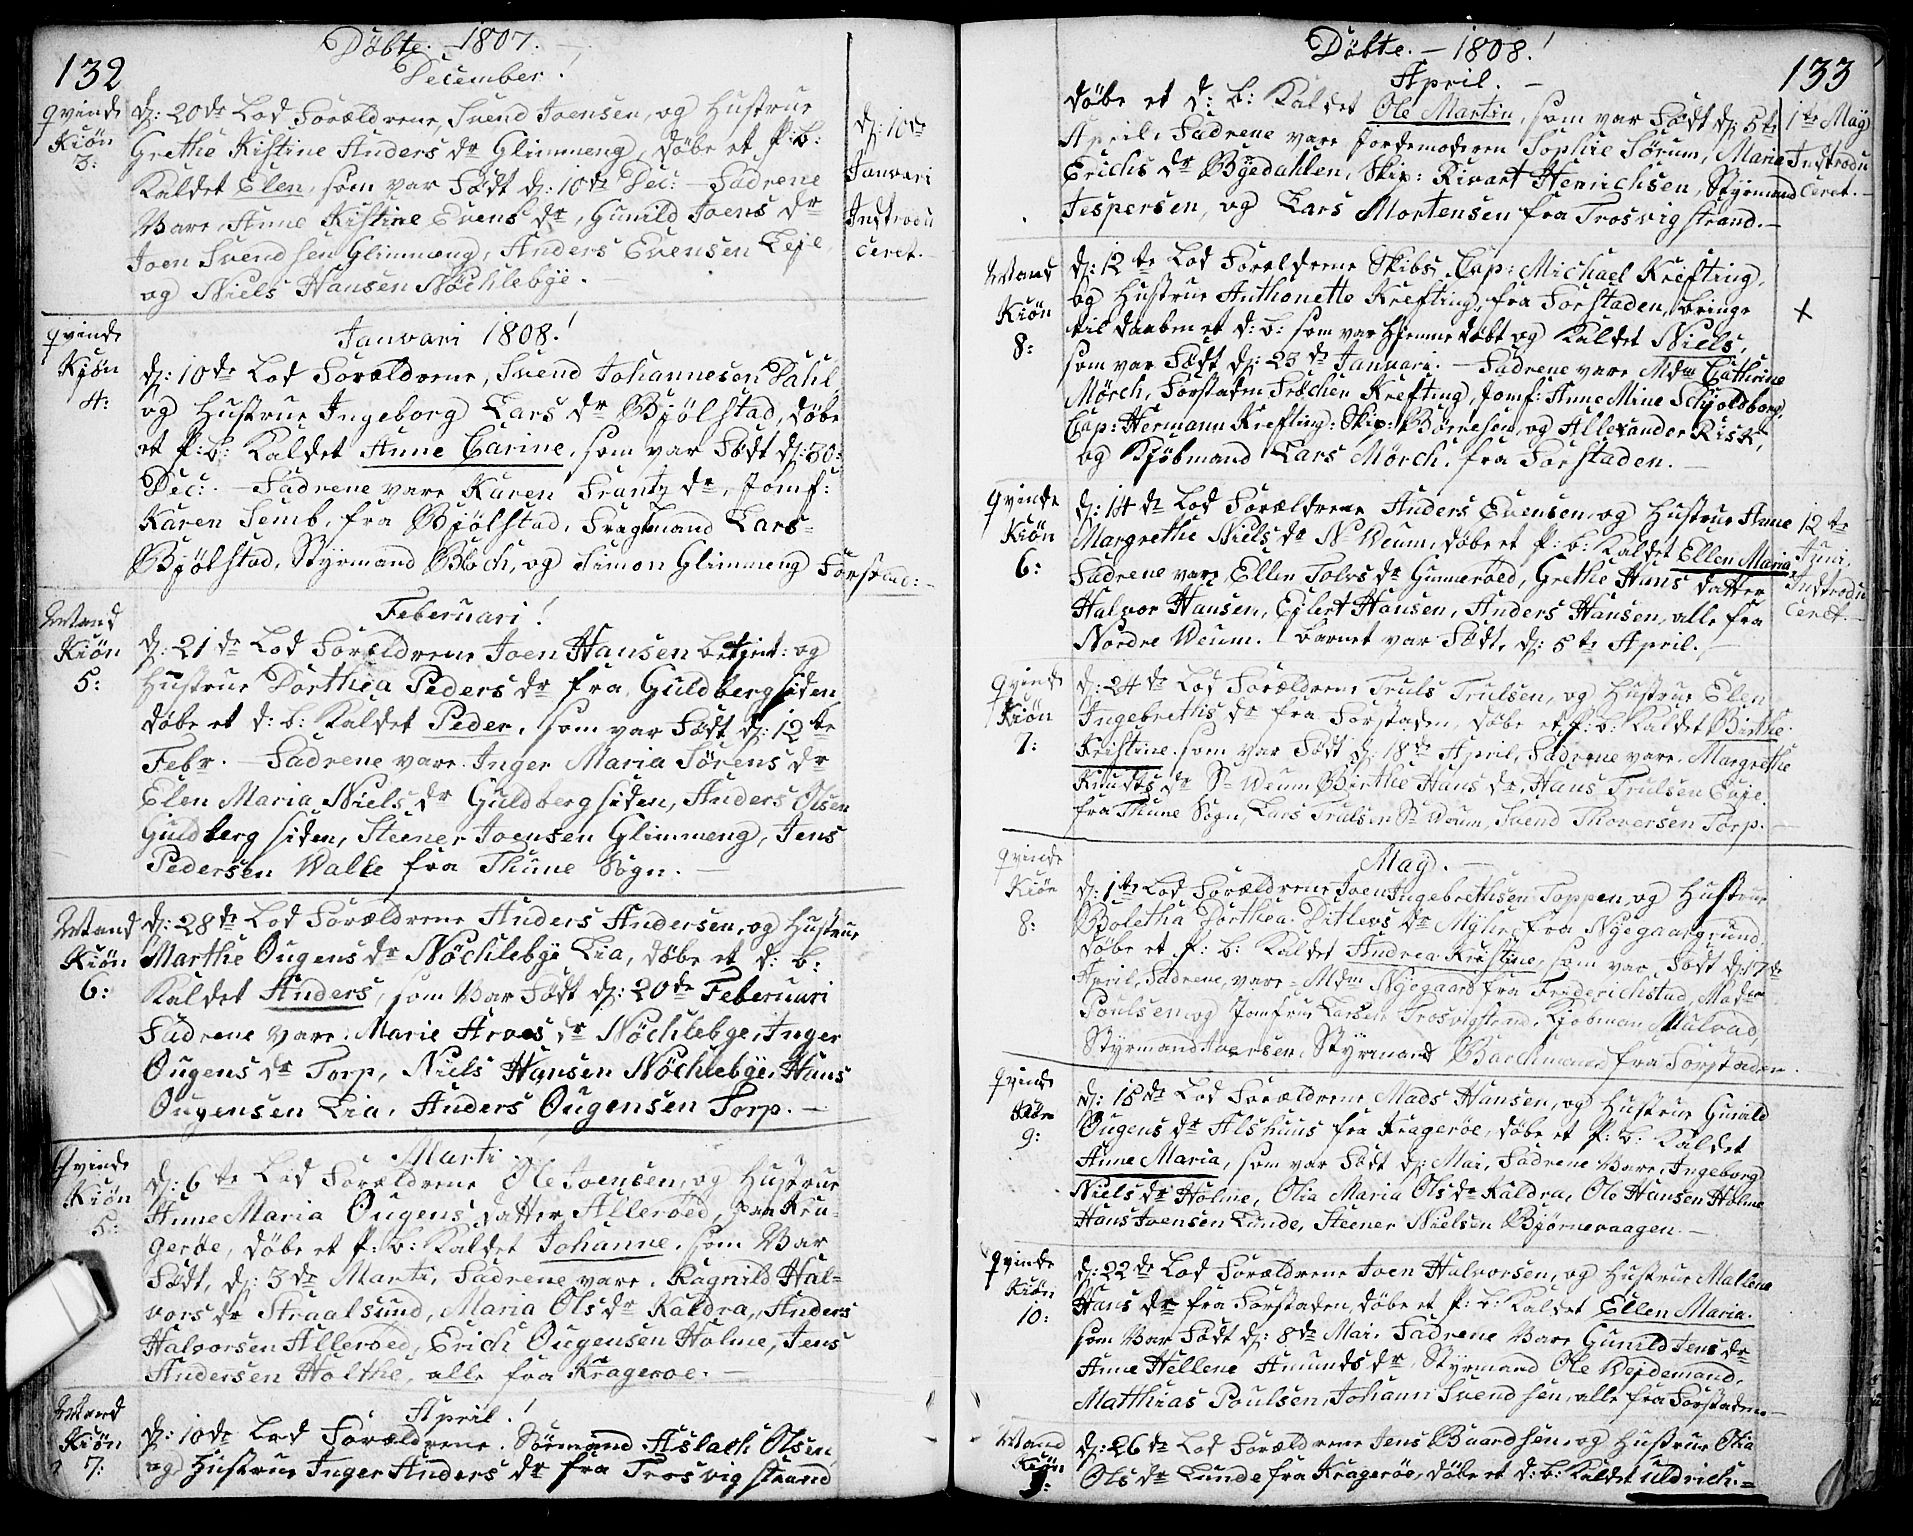 132
Döbte. - 1807. -
December!
qvinde
Kiön
3:
d: 20de Lod Forældrene, Svend Joensen, og Hustrue
Grethe Kistine Anders dr Glimmeng, døbe et P: b:
Kaldet Elen, som var Født d: 10de Dec: - Fadrene
Vare, Anne Kistine Evens dr, Gunild Joens dr
Joen Svendsen Glimmeng, Anders Evensen Leje,
og Niels Hansen Nöchlebye.
d: 10de
Januari
Introdu
ceret. -
Januari 1808!
qvinde
Kjön
4:
d: 10de Lod Forældrene, Svend Johannesen Dahl
og Hustrue Ingeborg Lars dr Bjölstad, døbe
et P: b: Kaldet Anne Carine, som var Født d: 30:
Dec: - Fadrene vare Karen Frantz dr, Jomf:
Karen Semb, fra Bjölstad, Lars-
Bjölstad, Styrmand Bloch, og Simon Glimmeng Forstad: -
Februari!
Mand
Kiön
5:
d: 21de Lod Forældrene Joen Hansen : og
Hustrue Dorthea Peders dr fra Guldbergsiden
døbe et d: b: Kaldet Peder, som var Født d: 12te
Febr. - Fadrene vare. Inger Maria Sörens dr
Elen Maria Niels dr Guldbergsiden, Anders Olsen
Guldbergsiden, Steener Joensen Glimmeng, Jens
Pedersen Walle fra Thune Sogn. -
Mand
Kiön
6:
d: 28de Lod Forældrene Anders Andersen, og Hustrue
Marthe Ougens dr Nöchlebye Lia, döbe et d: b:
Kaldet Anders, som Var Født d: 20de Februari
Fadrene vare. Marie Arves dr Nöchlebye, Inger
Ougens dr Torp, Niels Hansen Nöchlebye, Hans
Ougensen Lia, Anders Ougensen Torp. -
Marti
Qvinde
Kiön
5:
d: 6te Lod Forældrene Ole Joensen, og Hustrue
Anne Maria Ougens datter Alleröed, fra Kra-
geröe, döbe et P: b: Kaldet Johanne, som Var
Født, d: 3de Marti, Fadrene vare. Ragnild Hal-
vors dr Straalsund, Maria Ols dr Kaldra, Anders
Halvorsen Alleröed, Erich Ougensen Holme, Jens
Andersen Holthe, alle fra Krageroe. -
April!
Mand
Kiön
7:
d: 10de Lod Forældrene. Sömand Aslach Olsen,
og Hustrue Inger Anders dr fra Trosvigstrand
133
Döbte. - 1808!
April. -
döbe et d: b: Kaldet Ole Martin, som var Født d: 5te
April. Fadrene vare Jordemoderen Sophie Sörum, Maria
Erichs dr Bÿedahlen, Skip: Rivart Henrichsen, Styrmand
Jespersen, og Lars Mortensen fra Trosvigstrand. -
1te May
Introdu
ceret. -
Mand
Kiön
8:
d: 12te Lod Forældrene Skibs Cap: Michael Krefting,
og Hustrue Anthonette Krefting, fra Forstaden, bringe
til daaben et d: b: som var Hjemmedøbt og Kaldet Niels,
som var Født d: 23de Januari. - Fadrene vare Mdm Cathrine
Mörch, Forstaden Fröchen Krefting, Jomf: Anne Mine Schjoldborg,
Cap: Hermann Krefting, Skip: Börresen, og Allexander Risk,
og Kjöbmand Lars Mörch. fra Forstaden. -
x
qvinde
Kiön
6:
d: 14de Lod Forældrene Anders Evensen, og Hustrue Anne
Margrethe Niels dr Nr Weum, døbe et P: b: Kaldet Ellen Maria
Fadrene vare Ellen Tolvs dr Gunneröed, Grethe Hans datter
Halvor Hansen, Ejlert Hansen, Anders Hansen, alle fra
Nordre Weum. barnet var Født, d: 5te April. -
12te
Juni,
Introdu
ceret. -
qvinde
Kiön
7:
d: 24de Lod Forældrene Truls Trulsen, og Hustrue Elen
Ingebreths dr fra Forstaden, døbe et P: b: Kaldet Birthe
Kristine. som var Født d: 18de April, Fadrene vare. Margrethe
Knudts dr Sr Weum, Birthe Hans dr, Hans Trulsen
fra Thune Sogn, Lars Trulsen Sr Weum, Svend Thoversen Torp. -
May. -
qvinde
Kiön
8:
d: 1te Lod Forældrene Joen Ingebrethsen Toppen, og Hustrue
Boletha Dorthea Ditlevs dr Myhre, fra Nyegaardgrund
døbe et P: b: Kaldet Andrea Kristine, som var Født d: 17de
April, Fadrene, vare - Mdm Nyegaard fra Friderichstad, Madm
Poulsen, og Jomfrue Larsen Trosvigstrand, Kjøbman Mulvad,
Styrmand Iversen, Styrmand Barchmand fra Forstaden.
qvinde
Kiön
9:
d: 15de Lod Forældrene Mads Hansen, og Hustrue Gunild
Ougens dr Alshuus fra Krageröe, döbe et P: b: Kaldet
Anne Maria, som var Født d: Mai, Fadrene Vare, Ingeborg
Niels dr Holme, Olia Maria Ols dr Kaldra, Ole Hansen Holme
Hans Svensen Lunde, Steener Nielsen Björnevaagen. -
qvinde
Kiön
10:
d: 22de Lod Forældrene Joen Halvorsen, og Hustrue Mallene
Hans dr fra Forstaden, døbe et P: b: Kaldet Ellen Maria.
som Var Født d: 8de Mai. Fadrene Vare Gunild Jens dr
Anne Hellene Amunds dr, Styrmand Ole Wejdemand,
Matthias Poulsen, Johann Svendsen, alle fra Forstaden -
Mand
Kiön
9:
d: 26de Lod Forældrene Jens Baardsen, og Hustrue Olia
Ols dr Lunde fra Krageröe, døbe et d: b: Kaldet Uldrich. =